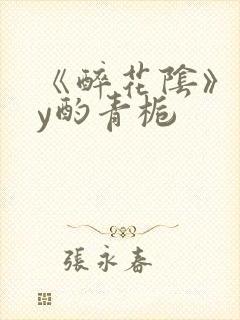 《醉花陰》
y酌青梔
張永春